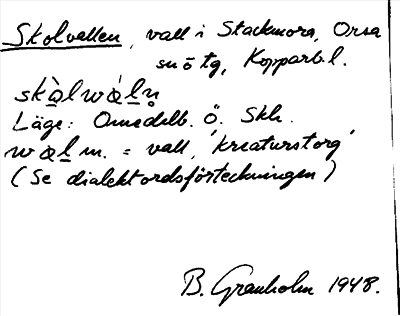 Skolvallen, vall i Stackmora, Orsa
sn ö tg, Kopparb. l.
skàlwàln̥
Läge: Omedelb. Ö. Skh.
wal m. = vall, 'kreaturstorg'
(Se dialektordsförteckningen)
B. Granholm 1948.